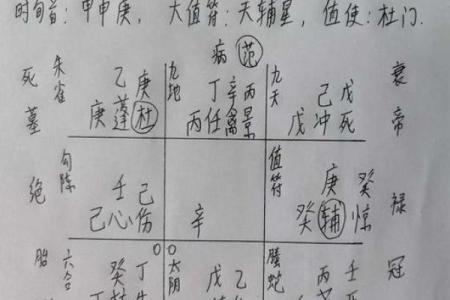 时旬首：甲申庚， 大值符：天辅星， 值使：杜门.
病 范
死 朱雀 乙 庚 九地 丁 辛 丙 九天 己 戊 衰
墓 庚 蓬 杜 丙 任 禽 景 戊 冲 死 帝
绝 勾陈 壬 己 值符 庚 癸 禄
己 心 伤 辛 癸 辅 惊
胎 六合 癸 丁 太阴 戊 乙 螣蛇 丙 壬 冠